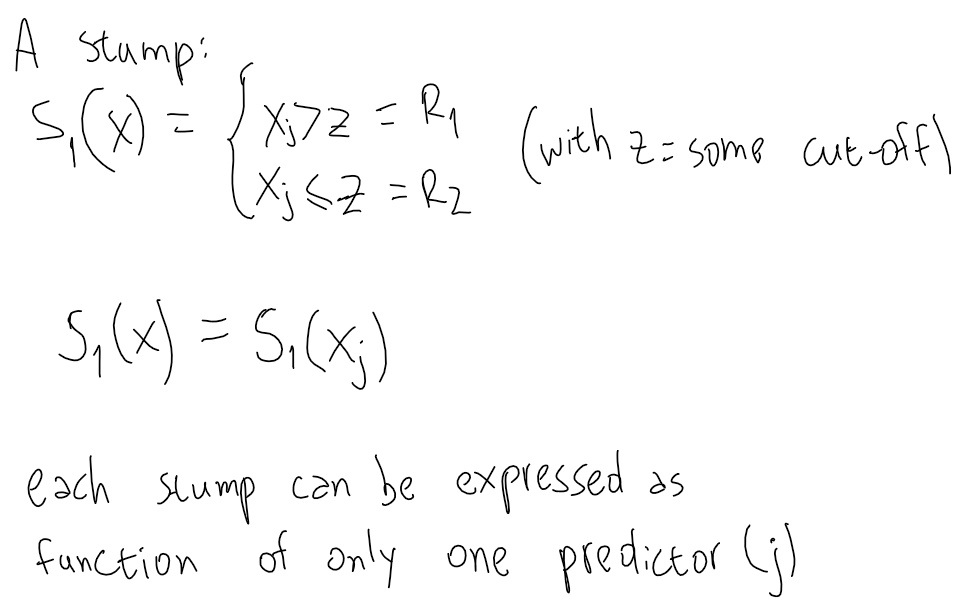 A stump:
S₁(x) = { xⱼ>z = R₁ (with z = some cut-off)
xⱼ≤z = R₂
S₁(x) = S₁(xⱼ)
each stump can be expressed as
function of only one predictor (j)